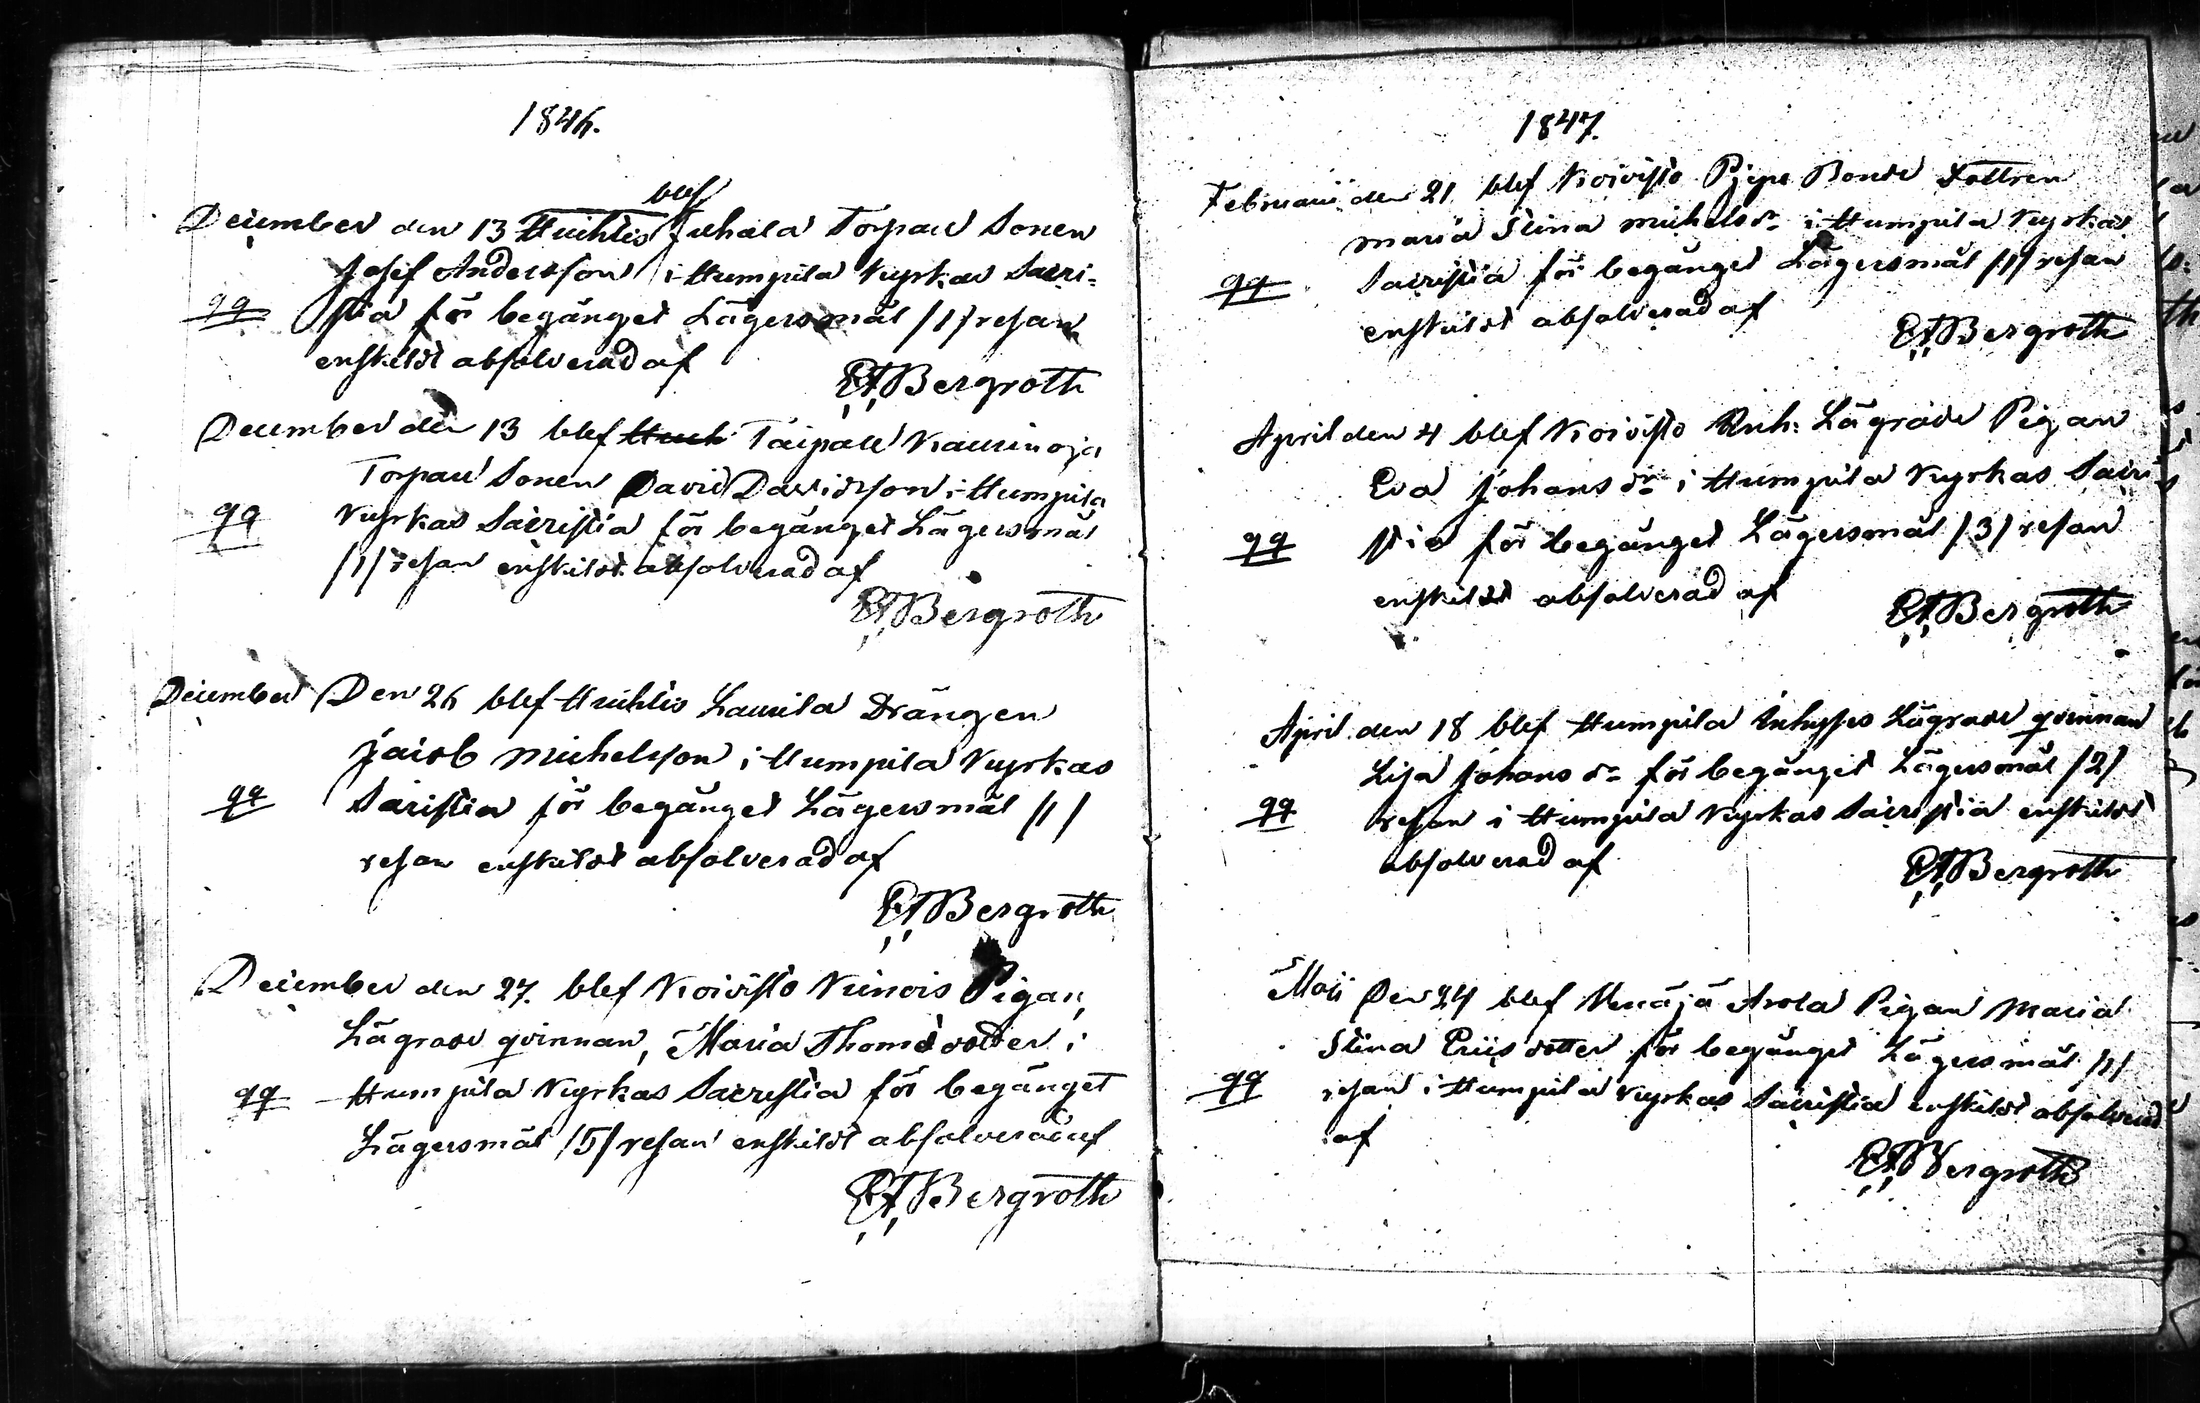 1846.
blef
December den 13 Huhtis Juhala Torpare Sonen
Josef Andersson i Humpila Kyrkas Sacri=
qq stia för begånget Lägersmål /1/ resan
enskildt absolverad af
Bergroth
December den 13 blef Huh Taipale Kaurinoja
Torpare Sonen David Davidsson i Humpila
qq Kyrkas Sacristia för begånget Lägersmål
/1/ resan enskildt absolverad af
Bergroth
December Den 26 blef Huhtis Laurila Drängen
Jacob Michelsson i Humpila Kyrkas
qq Sacristia för begånget Lägersmål /1/
resan enskildt absolverad af
Bergroth
December den 27. blef Koivisto Pigan,
Lägrade qvinnan, Maria Thomædotter i
qq Humpila Kyrkas Sacristia för begånget
Lägersmål /5/ resan enskildt absolverad af
Bergroth
1847.
Februarii den 21 blef Koivisto Bonde Dottren
Maria Stina Michelsdr i Humpila Kyrkas
qq Sacristia för begånget Lägersmål /1/ resan
enskildt absolverad af
Bergroth
April den 4 blef Koivisto Inh: Lägrade Pigan
Eva Johansdr i Humpila Kyrkas Sacri
qq stia för begånget Lägersmål /3/ resan
enskildt absolverad af
Bergroth
April den 18 blef Humpila Inhyses Lägrade qvinnan
Lisa Johansdr för begånget Lägersmål /2/
qq resan i Humpila Kyrkas Sacristia enskildt
absolverad af
Bergroth
Maji Den 24 blef Arola Pigan Maria
Stina Ericsdotter för begånget Lägersmål /1/
qq resan i Humpila Kyrkas Sacristia enskildt absolverad
af
Bergroth